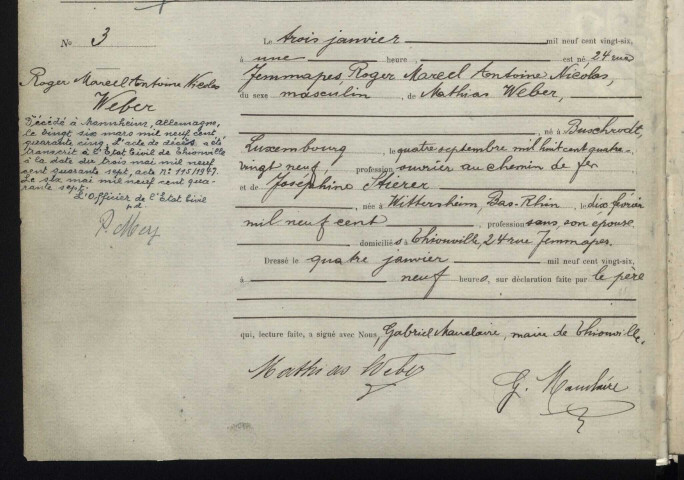 No 3
Roger Marcel Antoine Nicolas
Weber
Décédé à Mannheim, Allemagne,
le vingt six mars mil neuf cent
quarante cinq. L'acte de décès a été
transcrit à l'Etat Civil de Thionville
à la date du trois mai mil neuf
cent quarante sept, acte No 115/1947.
Le six mai mil neuf cent qua-
rante sept.
L'Officier de l'Etat Civil
Le trois janvier mil neuf cent vingt-six,
à une heure, est né 24 rue
Jemmapes, Roger Marcel Antoine Nicolas,
du sexe masculin, de Mathias Weber,
, né à Buschrodt,
Luxembourg, le quatre septembre mil huit cent quatre-
vingt neuf, profession ouvrier au chemin de fer
et de Joséphine Stierer
, née à Wittersheim, Bas-Rhin, le dix février
mil neuf cent, profession sans, son épouse,
domiciliés à Thionville, 24 rue Jemmapes.
Dressé le quatre janvier mil neuf cent vingt-six,
à neuf heures, sur déclaration faite par le père
qui, lecture faite, a signé avec Nous, Gabriel Mauclaire, maire de Thionville.
Mathias Weber
G. Mauclaire